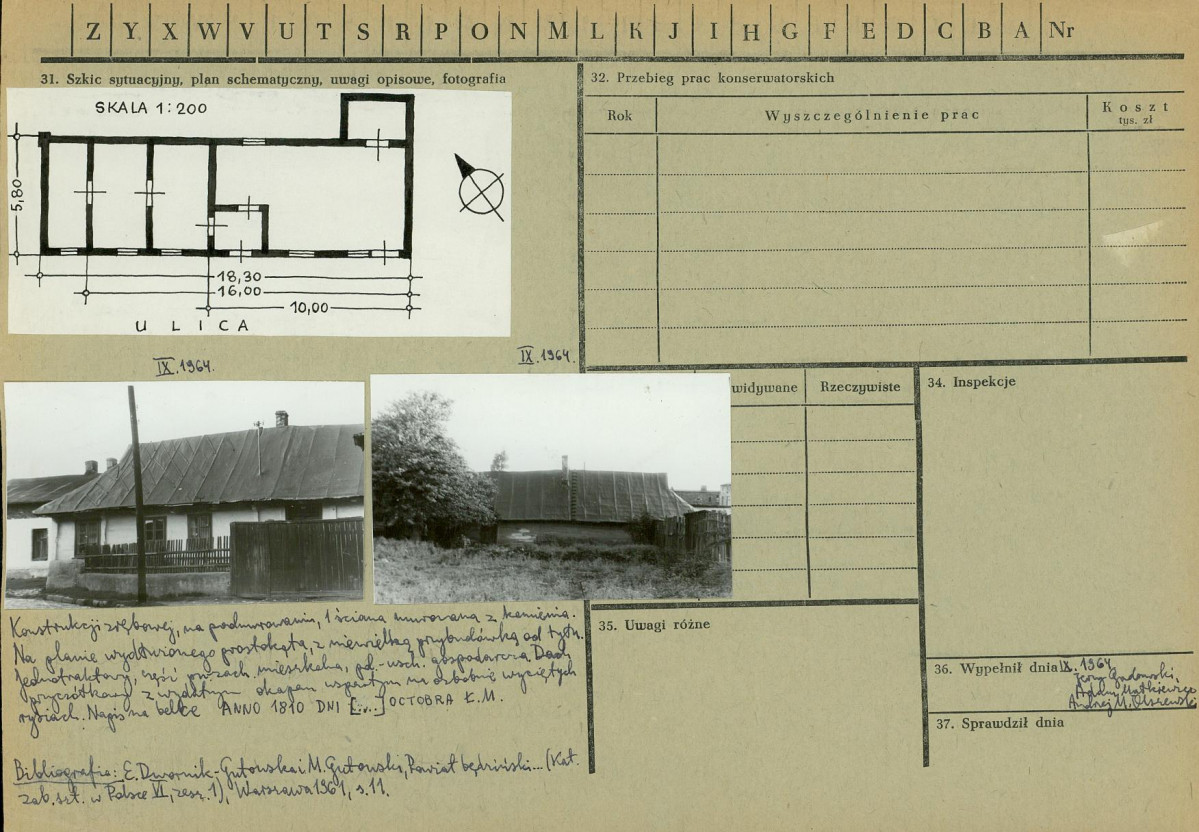 Z Y X W V U T S R P O N M L K J I H G F E D C B A Nr
31. Szkic sytuacyjny, plan schematyczny, uwagi opisowe, fotografia
SKALA 1:200
5,80
18,30
16,00
10,00
ULICA
IX.1964.
IX.1964.
Konstrukcji zrębowej, na podmurowaniu, 1 ściana murowana z kamienia.
Na planie wydłużonego prostokąta, z niewielką przybudówką od tyłu.
Jednotraktowy, część pn.zach. mieszkalna, pd.-wsch. gospodarcza. Dach
przyczółkowy z wydatnym okapem wspartym na ozdobnie wyciętych
rysiach. Napis na belce ANNO 1810 DNI [...] OCTOBRA Ł.M.
Bibliografia: E. Dwornik-Gutowska i M. Gutowski, Powiat będziński... (Kat.
zab. szt. w Polsce VI, zesz. 1), Warszawa 1961, s.11.
32. Przebieg prac konserwatorskich
Rok
Wyszczególnienie prac
Koszt
tys. zł
widywane
Rzeczywiste
34. Inspekcje
35. Uwagi różne
36. Wypełnił dnia IX. 1964
Jerzy Gadomski,
Małkiewicz
Andrzej M. Olszewski
37. Sprawdził dnia